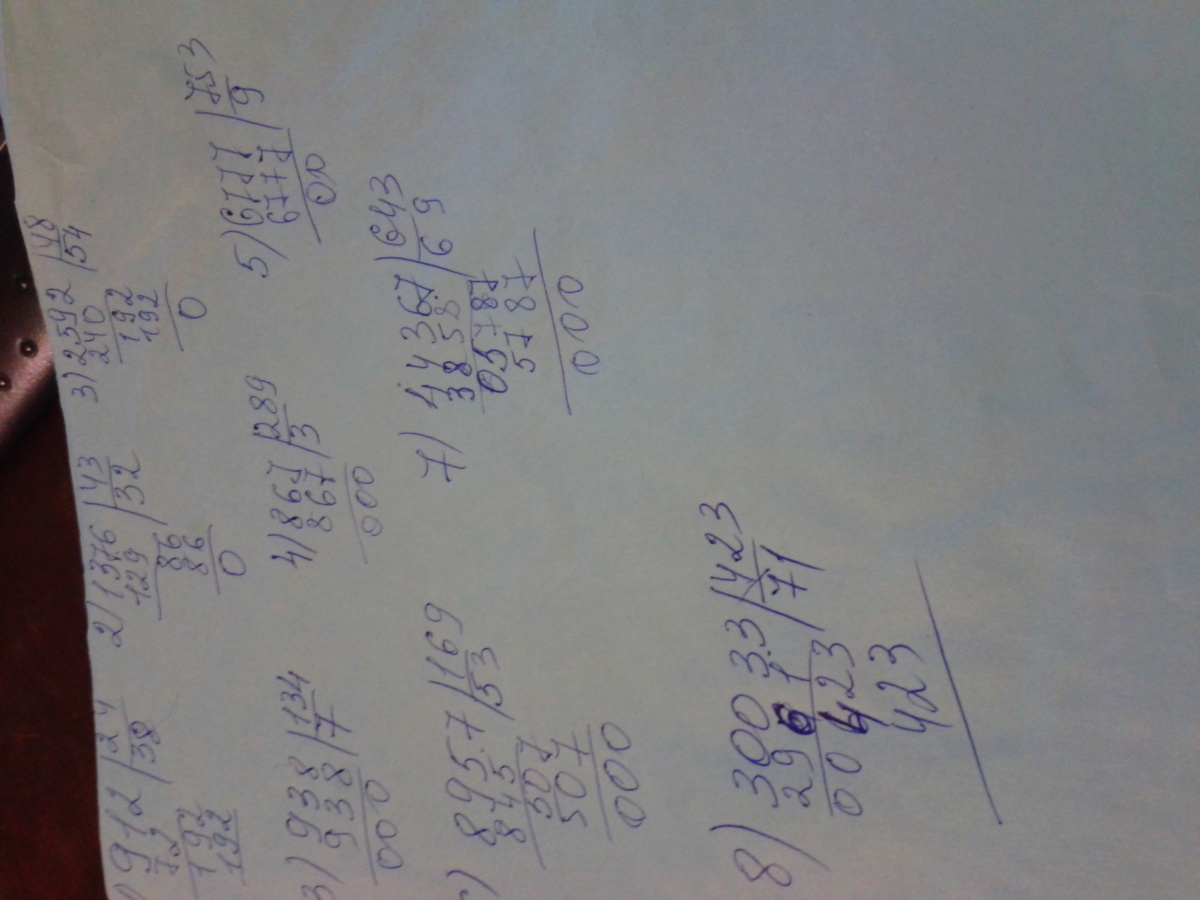 ) 912 | 24
72 | 38
192
192
2) 1376 | 43
129 | 32
86
86
0
3) 2592 | 48
240 | 54
192
192
0
3) 938 | 134
938 | 7
000
4) 867 | 289
867 | 3
000
5) 6777 | 753
6777 | 9
00
) 895.7 | 169
845 | 53
507
507
000
7) 4436.7 | 643
3858 | 69
05787
5787
000
8) 3003.3 | 423
2961 | 71
00423
423